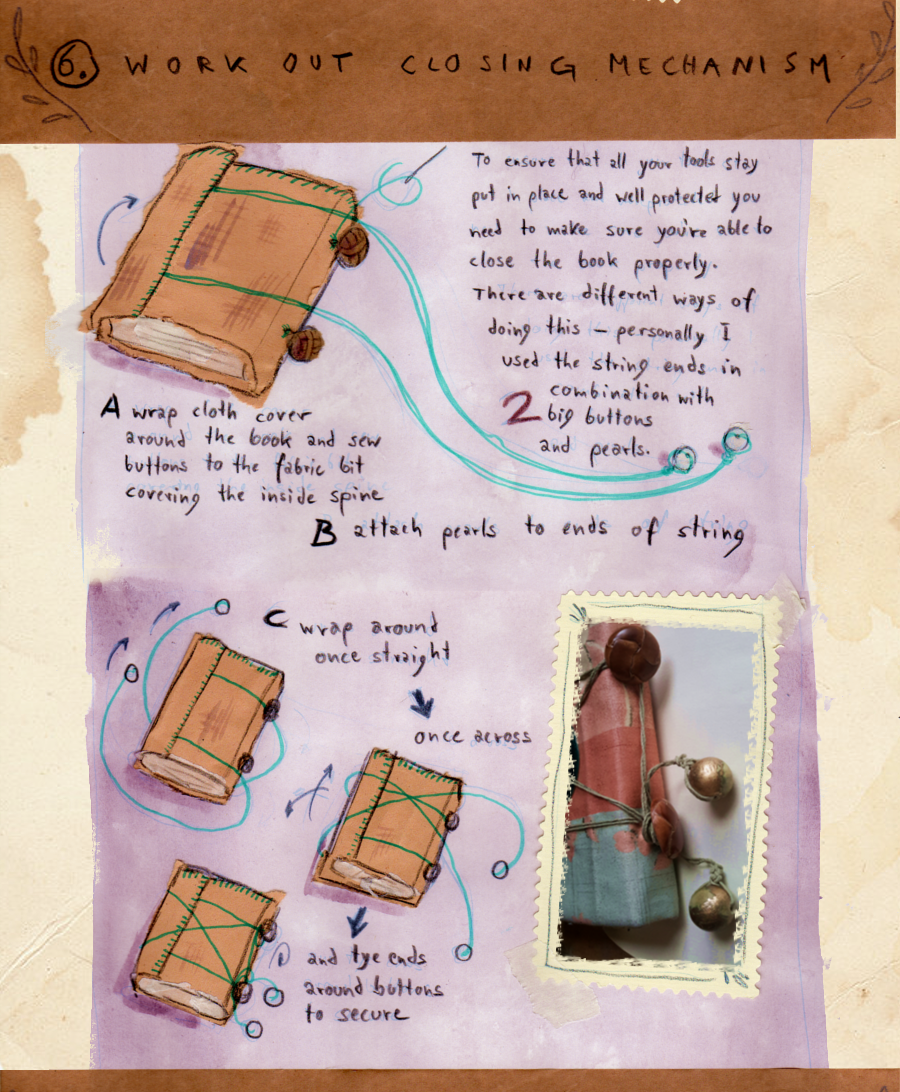 6. WORK OUT CLOSING MECHANISM
To ensure that all your tools stay
put in place and well protected you
need to make sure you're able to
close the book properly.
There are different ways of
doing this – personally I
used the string ends in
combination with
2 big buttons
and pearls.
A wrap cloth cover
around the book and sew
buttons to the fabric bit
covering the inside spine
B attach pearls to ends of string
C wrap around
once straight
once across
D and tye ends
around buttons
to secure